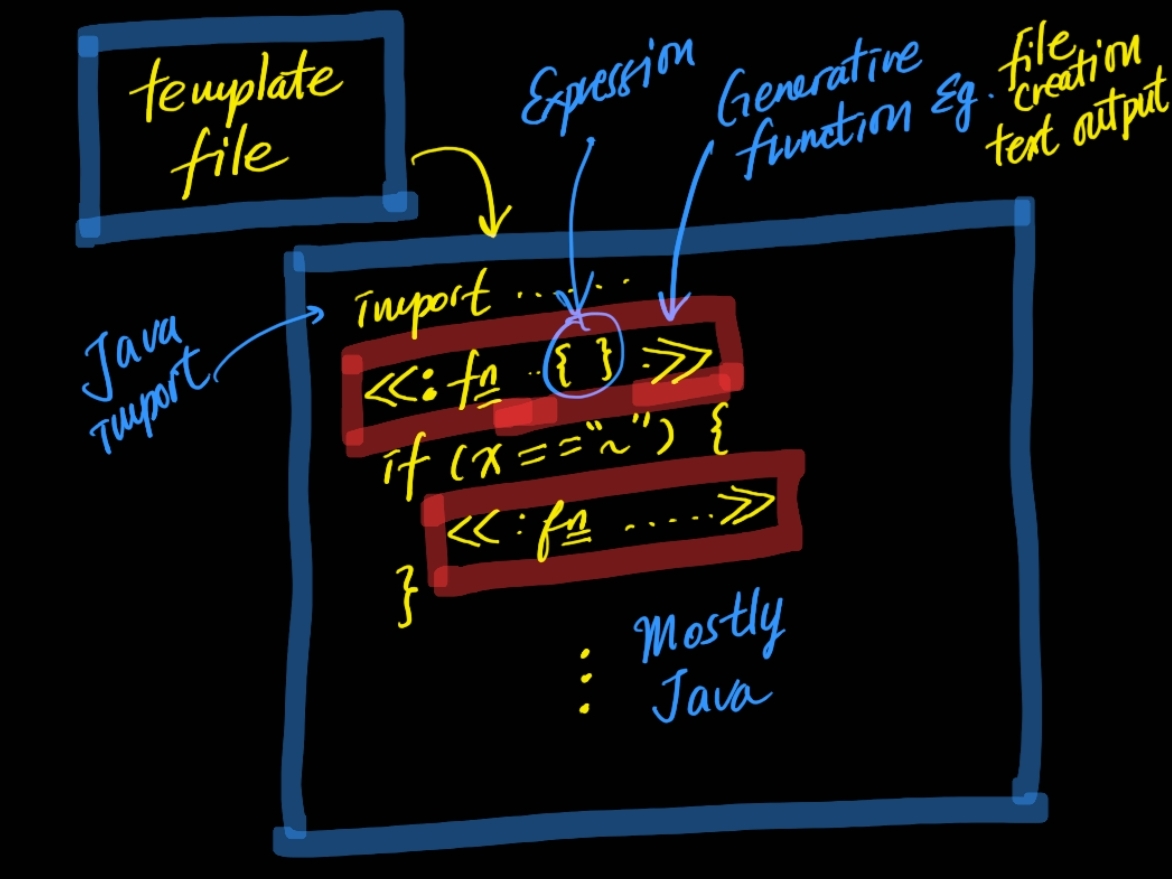 template
file
Expression
Generative
function Eg.
file
creation
text output
Java
import
import ......
<<: fn .. { } .>>
if (x == "~") {
<<: fn ......>>
}
⋮
Mostly
Java